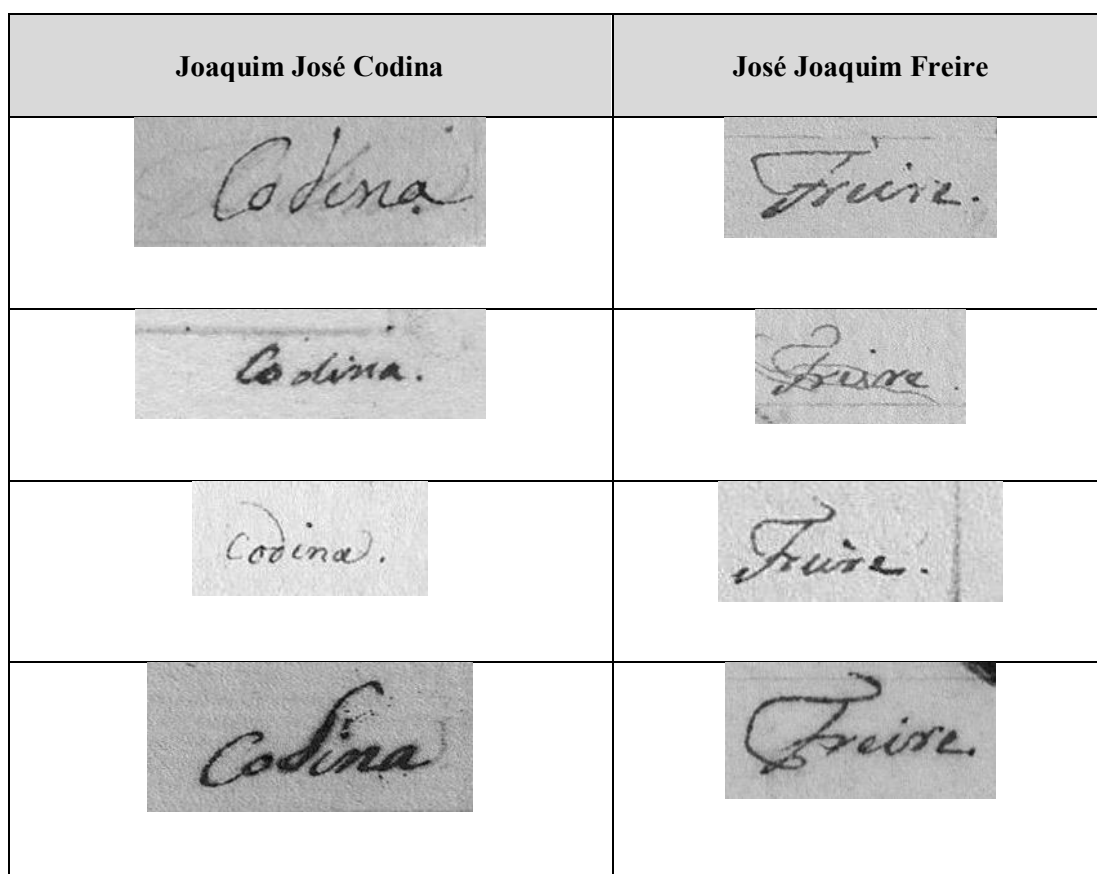 Joaquim José Codina José Joaquim Freire
Codina Freire.
Codina. Freire.
Codina. Freire.
Codina Freire.